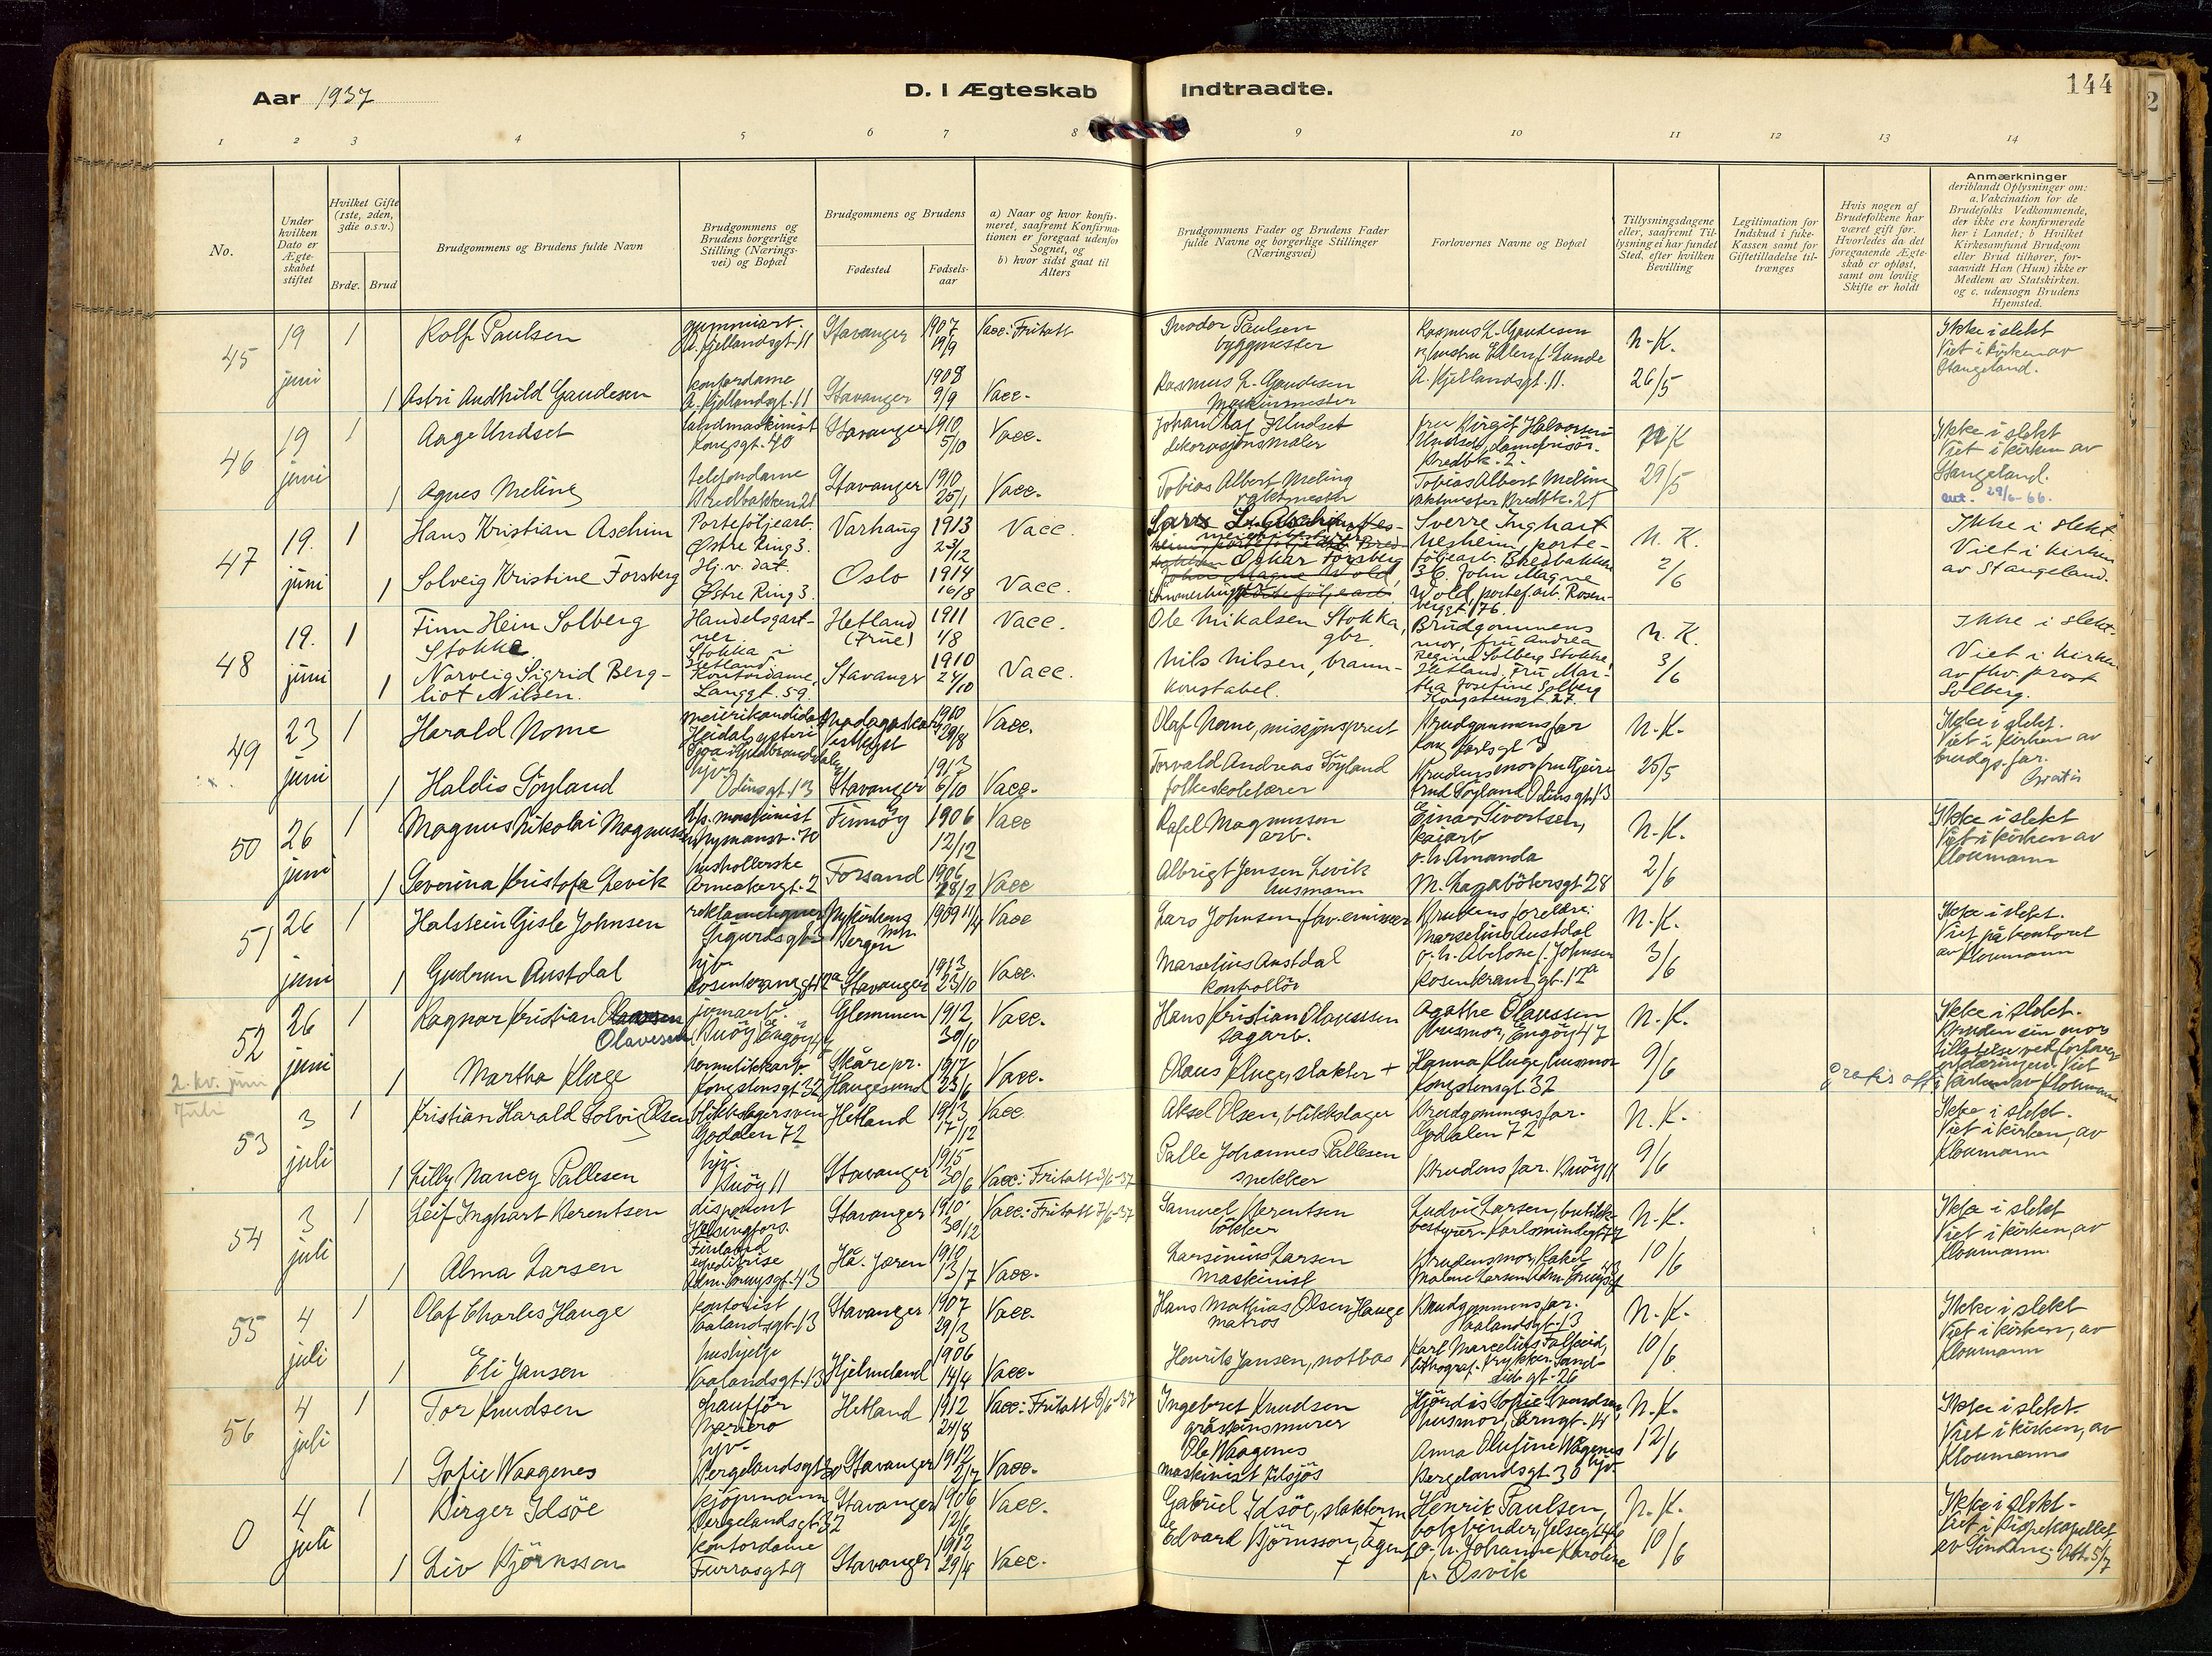 Aar 1937
D. I Ægteskab Indtraadte.
144
2
1 2 3 4 5 6 7 8 9 10 11 12 13 14
No.
Under hvilken Dato er Ægteskabet stiftet
Hvilket Gifte (1ste, 2den, 3die o.s.v.)
Brdg. Brud
Brudgommens og Brudens fulde Navn
Brudgommens og Brudens borgerlige Stilling (Næringsvei) og Bopæl
Brudgommens og Brudens
Fødested
Fødselsaar
a) Naar og hvor konfirmeret, saafremt Konfirmationen er foregaaet udenfor Sognet, og
b) hvor sidst gaat til Alters
Brudgommens Fader og Brudens Fader fulde Navne og borgerlige Stillinger (Næringsvei)
Forlovernes Navne og Bopæl
Tillysningsdagene eller, saafremt Tillysning ei har fundet Sted, efter hvilken Bevilling
Legitimation for Indskud i fuke-Kassen samt for Giftetilladelse tiltrænges
Hvis nogen af Brudefolkene har været gift før. Hvorledes da det foregaaende Ægteskab er opløst, samt om lovlig Skifte er holdt
Anmærkninger
deriblandt Oplysninger om: a. Vakcination for de Brudefolks Vedkommende, der ikke ere konfirmerede her i Landet; b Hvilket Kirkesamfund Brudgom eller Brud tilhører, forsaavidt Han (Hun) ikke er Medlem av Statskirken. og c. udensogn Brudens Hjemsted.
45
19 juni
1 Rolf Paulsen
gummiarb. A. Kjellandsgt. 11
Stavanger 1907 19/9
Vacc: Fritatt
Paulsen byggmester
Rasmus L. Gaudesen
A. Kjellandsgt. 11.
N.K. 26/5
Ikke i slekt
Viet i kirken av Stangeland.
1 Astri Audhild Gaudesen
kontordame A. Kjellandsgt. 11
Stavanger 1908 9/9
Vacc.
Rasmus L. Gaudesen Maskinmester
46
19 juni
1 Aage Undset
Kongsgt. 40
Stavanger 1910 5/10
Vacc.
Johan Olaf Undset dekorasjonsmaler
fru Birgit Halvorsen Undset, damefrisör. Bredbk. 2.
N.K 29/5
Ikke i slekt
Viet i kirken av Stangeland.
29/6-66.
1 Agnes Meling
telefondame Bredbakken 21
Stavanger 1910 25/1
Vacc.
Tobias Albert Meling vaktmester
Tobias Albert Meling vaktmester Bredbk. 21
47
19. juni
1 Hans Kristian Aschim
Porteføljearb. Østre Ring 3.
Varhaug 1913 23/12
Vacc.
Sverre Inghart Nesheim, porteføljearb. Bredbakken 36. John Magne Wold, portef.arb. Rosenbergt. 176.
N.K. 2/6
Ikke i slekt.
Viet i kirken av Stangeland.
1 Solveig Kristine Forsberg
Hj. v. dat. Østre Ring 3.
Oslo 1914 16/8
Vacc.
Oskar Forsberg
48
19. juni
1 Finn Hein Solberg Stokke
Handelsgartner Stokka i Hetland.
Hetland (Frue) 1911 1/8
Vacc.
Ole Mikalsen Stokka, gbr.
Brudgommens mor, fru Andrea Regine Solberg Stokke, Hetland. Fru Martha Josefine Solberg Kongstensgt. 27.
N.K. 3/6
Ikke i slekt.
Viet i kirken av fhv. prost Solberg.
1 Norveig Sigrid Bergliot Nilsen.
Kontordame, Langgt. 59.
Stavanger 1910 24/10
Vacc.
Nils Nilsen, brannkonstabel.
49
23 juni
1 Harald Nome
meierikandidat Heidal ysteri
Madagaskar Vestkyst 1910 29/8
Vacc.
Olaf Nome, misjonsprest
Brudgommens far
N.K. 25/5
Ikke i slekt.
Viet i kirken av brudgs. far.
Gratis
1 Haldis Söyland
hjv. Odinsgt. 13
Stavanger 1913 6/10
Vacc.
Torvald Andreas Söyland folkeskolelærer
50
26 juni
1 Magnus Nikolai Magnussen
Nymansv. 70
Finnöy 1906 12/12
Vacc
Rafel Magnusson arb.
Einar Sivertsen, kaiarb. o. h. Amanda
M. Skagabötersgt 28
N.K. 2/6
Ikke i slekt
Viet i kirken av Kloumann
1 Severina Kristofa Levik
husholderske Arneabergt. 2
Forsand 1906 28/2
Vacc
Albrigt Jensen Levik husmann
51
26 juni
1 Halstein Gisle Johnsen
reklametegner Sigurdsgt. 3
Nykirkens Bergen 1909 11/4
Vacc
Lars Johnsen fhv. emissær
Brudens foreldre: Marselius Austdal o. h. Abelone f. Johnsen Rosenkrantzgt. 17a
N.K. 3/6
Ikke i slekt.
Viet på kontoret av Kloumann
1 Gudrun Austdal
hjv Rosenkranzgt 17a
Stavanger 1913 23/10
Vacc.
Marselius Austdal kontrollör
52
26 juni
1 Ragnar Kristian Olaussen Olavesen
jernarb. Buöy Engöy 47
Glemmen 1912 30/10
Vacc.
Hans Kristian Olaussen sagarb.
Agathe Olaussen Husmor, Engöy 47
N.K. 9/6
Ikke i slekt.
1 Martha Kluge
hermetikkarb. Kongstensgt 32
Skåre pr. Haugesund 1917 23/6
Vacc.
Olaus Kluge, slakter +
Hanna Kluge, husmor Kongstensgt 32
gratis att
2. kv. juni
Juli
53
3 juli
1 Kristian Harald Solvi Olsen
blikkslagersvenn Godalen 72
Hetland 1913 17/12
Vacc
Aksel Olsen, blikkslager
Brudgommens far. Godalen 72
N.K. 9/6
Ikke i slekt.
Viet i kirken, av Kloumann
1 Lilly Nancy Pallesen
hjv. Buöy 11
Stavanger 1915 30/6
Vacc: Fritatt 3/6-37
Palle Johannes Pallesen snekker
Brudens far. Buöy 11
54
3 juli
1 Leif Inghart Berentsen
disponent Helsingfors. Finland
Stavanger 1910 30/12
Vacc: Fritatt 7/6-37
Samuel Berentsen bökker
Ludvig Larsen, butikkbestyrer. Karlsmindegt 77
N.K. 10/6
Ikke i slekt
Viet i kirken, av Kloumann.
1 Alma Larsen
expeditrise Adm. Cruysgt. 43
Hå. Jæren 1910 13/7
Vacc.
Larsinius Larsen Maskinist
Brudens mor, Rakel Malene Larsen Adm. Cruysgt 43
55
4 juli
1 Olaf Charles Hauge
kontorist Vaalandsgt. 13
Stavanger 1907 29/3
Vacc.
Hans Mathias Olsen Hauge matros
Brudgommens far. Vaalandsgt. 13
N.K. 10/6
Ikke i slekt
Viet i kirken, av Kloumann
1 Eli Jansen
hushjelp Vaalandsgt. 13
Hjelmeland 1906 14/4
Vacc.
Henrik Jansen, notbas
56
4 juli
1 Tor Knudsen
chaufför Mariero
Hetland 1912 24/8
Vacc: Fritatt 8/6-37
Ingebret Knudsen gråstensmurer
Hjördis Sofie Svendsen, husmor, Erngt. 14
N.K. 12/6
Ikke i slekt.
Viet i kirken, av Kloumann
1 Sofie Waagenes
hjv. Bergelandsgt 30
Stavanger 1912 2/7
Vacc.
Ole Waagenes maskinist tilsjös
Anna Olufine Wågenes Bergelandsgt. 30 hjv.
0
4 juli
1 Birger Idsöe
kjöpmann Bergelandsgt. 32
Stavanger 1906 12/6
Vacc.
Gabriel Idsöe, slakterm
Henrik Paulsen, bokbinder, Jelsegt 46 o. h. Johanne Karoline f. Osvik
N.K. 10/6
Ikke i slekt.
Viet i Bispekapellet
1 Liv Bjørnsson
kontordame Furrasgt 9
Stavanger 1912 29/4
Vacc.
Edvard Björnsson, agent +